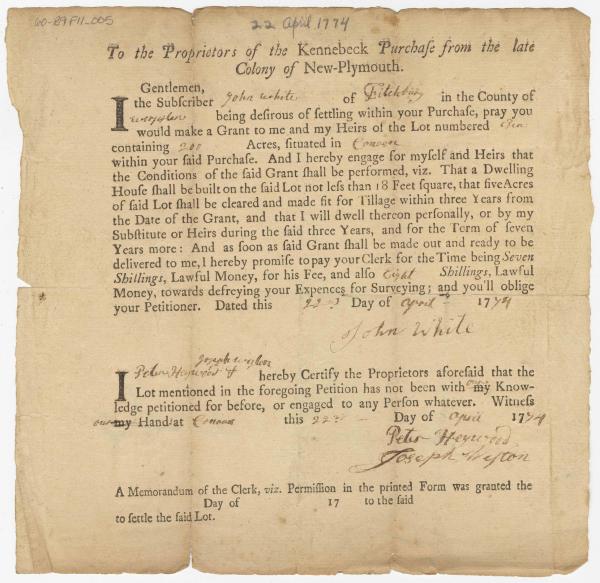 60-89F11_005
22 April 1774
To the Proprietors of the Kennebeck Purchaſe from the late
Colony of New-Plymouth.
Gentlemen,
I the Subſcriber John White of Fitchburg in the County of
being deſirous of ſettling within your Purchaſe, pray you
would make a Grant to me and my Heirs of the Lot numbered
containing 200 Acres, ſituated in Canaan
within your ſaid Purchaſe. And I hereby engage for myſelf and Heirs that
the Conditions of the ſaid Grant ſhall be performed, viz. That a Dwelling
Houſe ſhall be built on the ſaid Lot not leſs than 18 Feet ſquare, that five Acres
of ſaid Lot ſhall be cleared and made fit for Tillage within three Years from
the Date of the Grant, and that I will dwell thereon perſonally, or by my
Subſtitute or Heirs during the ſaid three Years, and for the Term of ſeven
Years more: And as ſoon as ſaid Grant ſhall be made out and ready to be
delivered to me, I hereby promiſe to pay your Clerk for the Time being Seven
Shillings, Lawful Money, for his Fee, and alſo Eight Shillings, Lawful
Money, towards defreying your Expences for Surveying; and you'll oblige
your Petitioner. Dated this 22d Day of April 1774
John White
Joseph Weston
I Peter Heywood & hereby Certify the Proprietors aforeſaid that the
Lot mentioned in the foregoing Petition has not been with our my Know-
ledge petitioned for before, or engaged to any Perſon whatever. Witneſs
our my Hand at Canaan this 22d Day of April 1774
Peter Heywood
Joseph Weston
A Memorandum of the Clerk, viz. Permiſſion in the printed Form was granted the
Day of 17 to the ſaid
to ſettle the ſaid Lot.